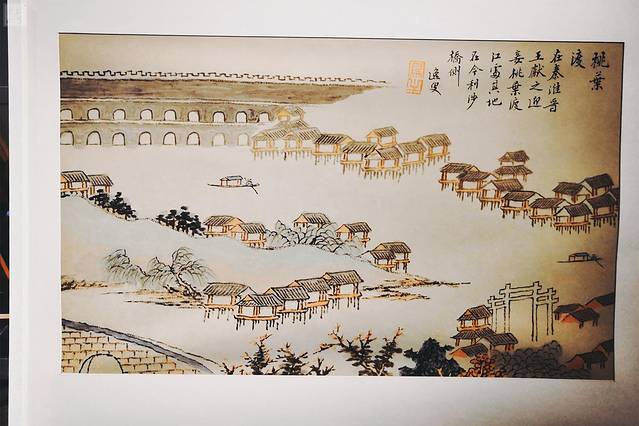 桃葉
渡
在秦淮晋
王獻之迎
妾桃葉渡
江處其地
在今利涉
橋側
逸叟